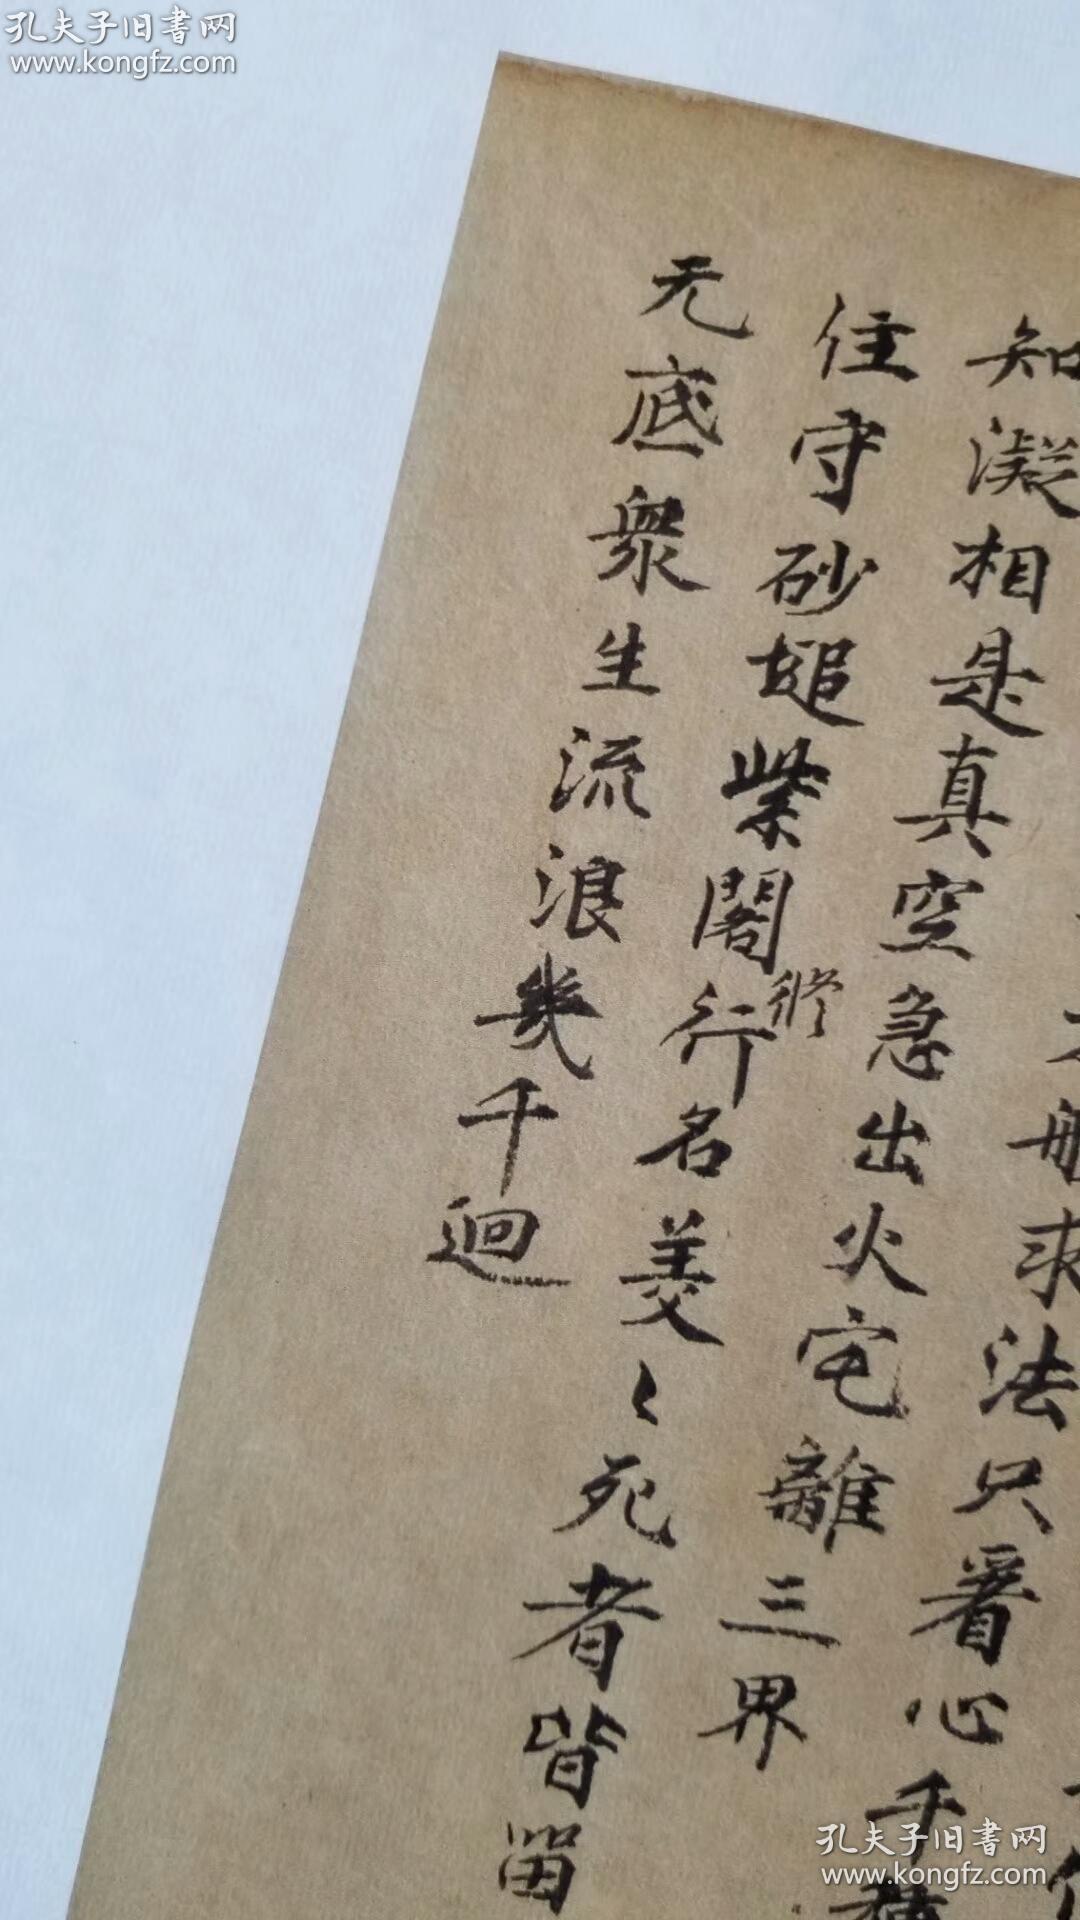 孔夫子旧书网
www.kongfz.com
求法只著心千
知凝相是真空急出火宅離三界
住守砂塠紫閣修行名美〻死者皆留
无底衆生流浪幾千迴
孔夫子旧书网
www.kongfz.com